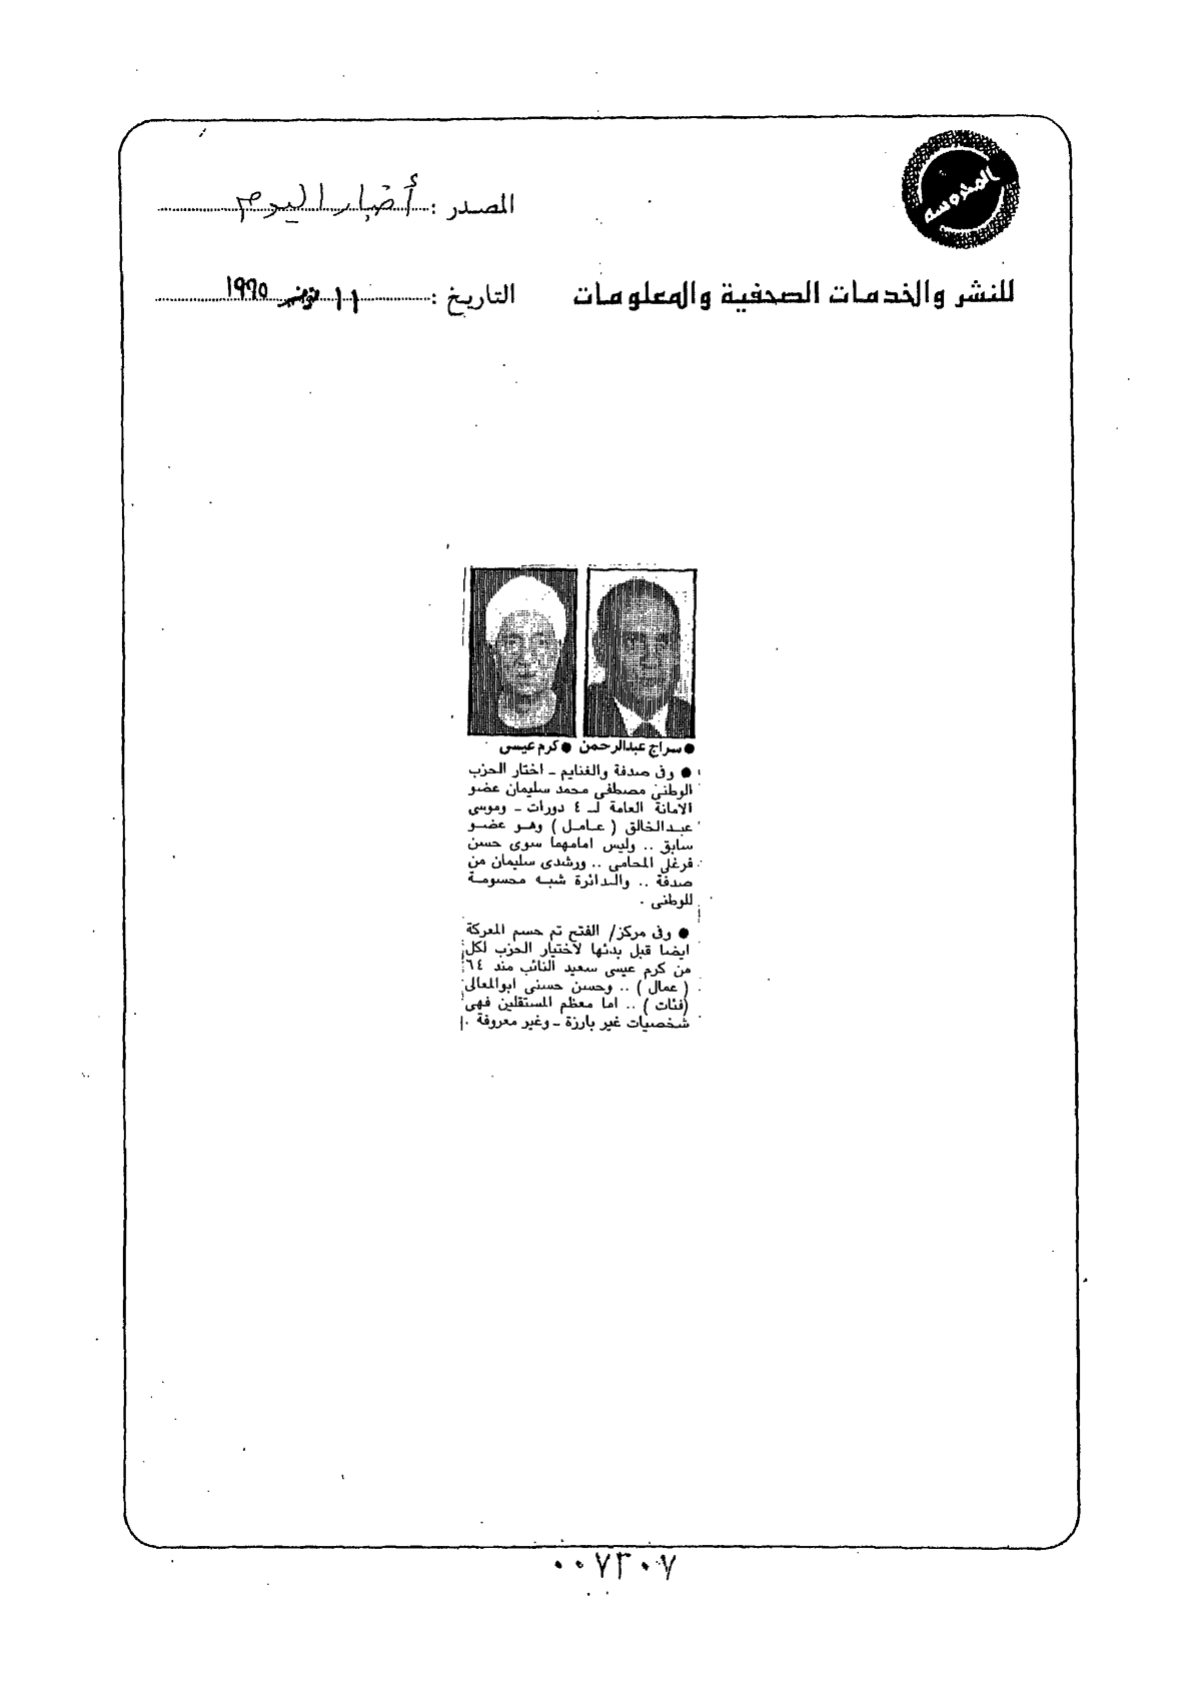 المحروسة
المصدر : أخبار اليوم
للنشر والخدمات الصحفية والمعلومات
التاريخ : ١١ نوفمبر ١٩٩٥
● سراج عبدالرحمن ● كرم عيسى
● وفى صدفة والغنايم ـ اختار الحزب
الوطنى مصطفى محمد سليمان عضو
الامانة العامة لـ ٤ دورات ـ وموسى
عبدالخالق ( عامل ) وهو عضو
سابق .. وليس امامهما سوى حسن
فرغلى المحامى .. ورشدى سليمان من
صدفة .. والدائرة شبه محسومة
للوطنى .
● وفى مركز/ الفتح تم حسم المعركة
ايضا قبل بدئها لاختيار الحزب لكل
من كرم عيسى سعيد النائب منذ ٦٤
( عمال ) .. وحسن حسنى ابوالمعالى
(فئات ) .. اما معظم المستقلين فهى
شخصيات غير بارزة ـ وغير معروفة .
٠٠٧٣٠٧